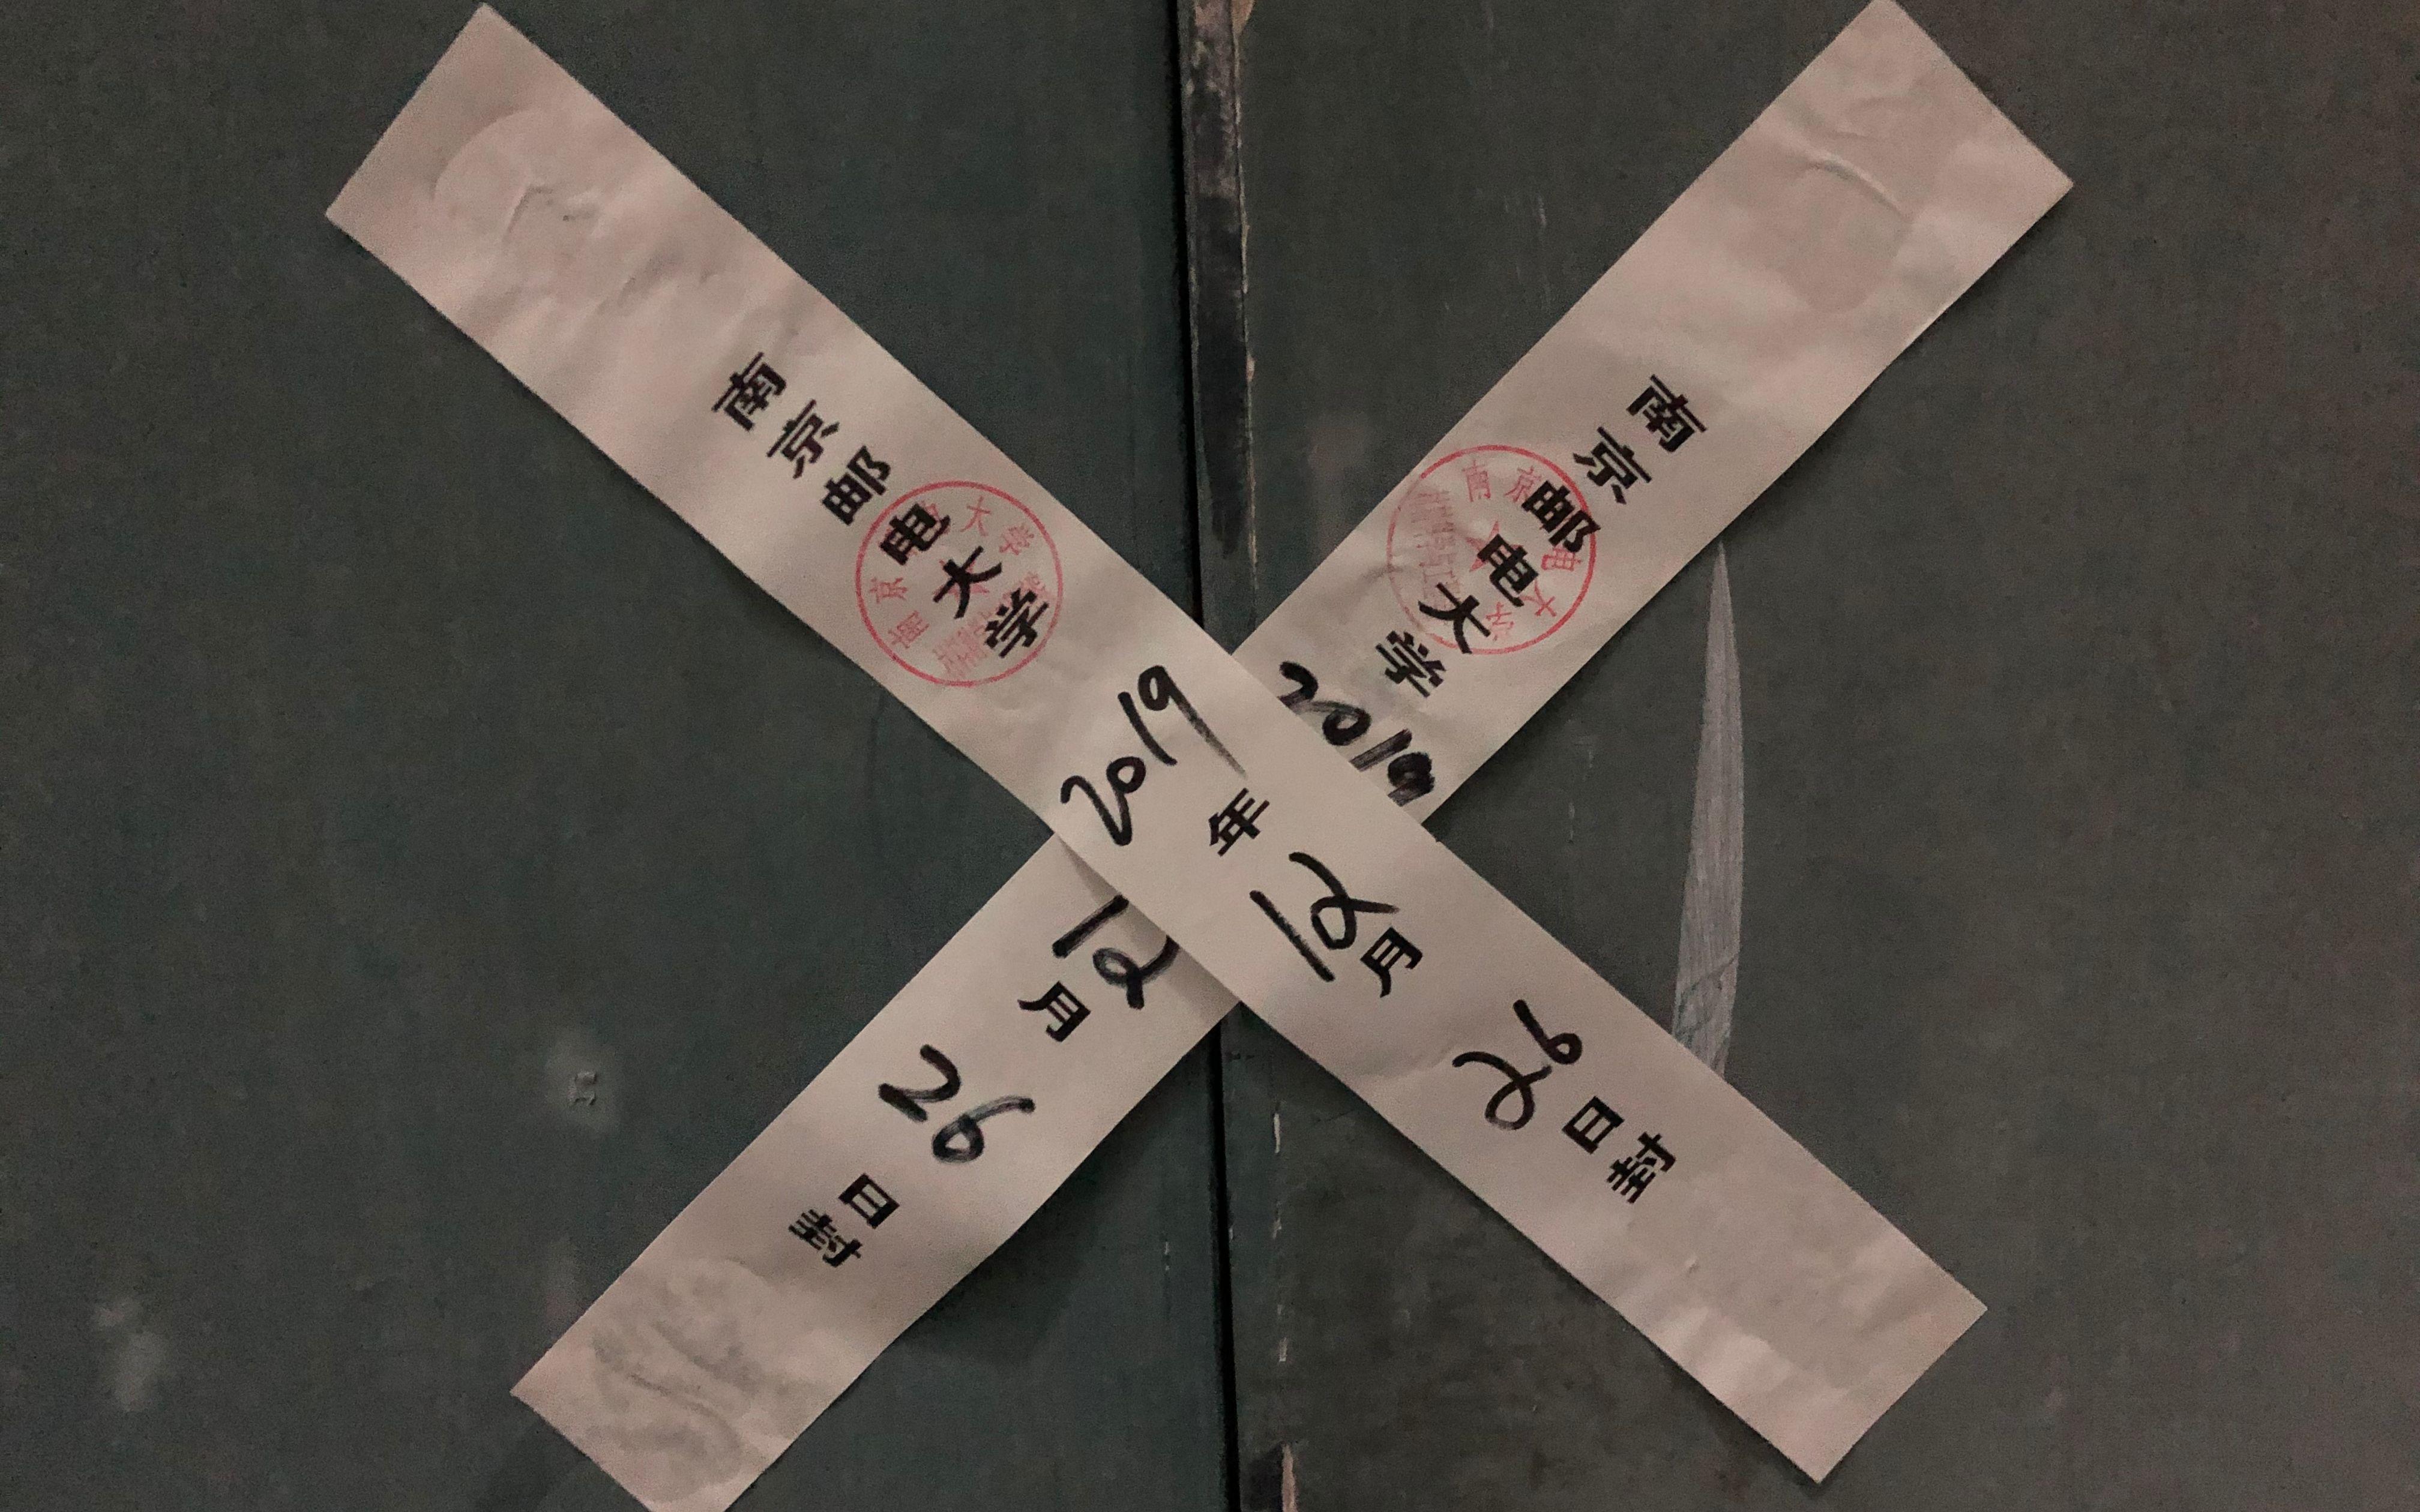 南京邮电大学
2019年12月26日封
南京邮电大学
2019
12月26日封
南京 大学
南京 电大学